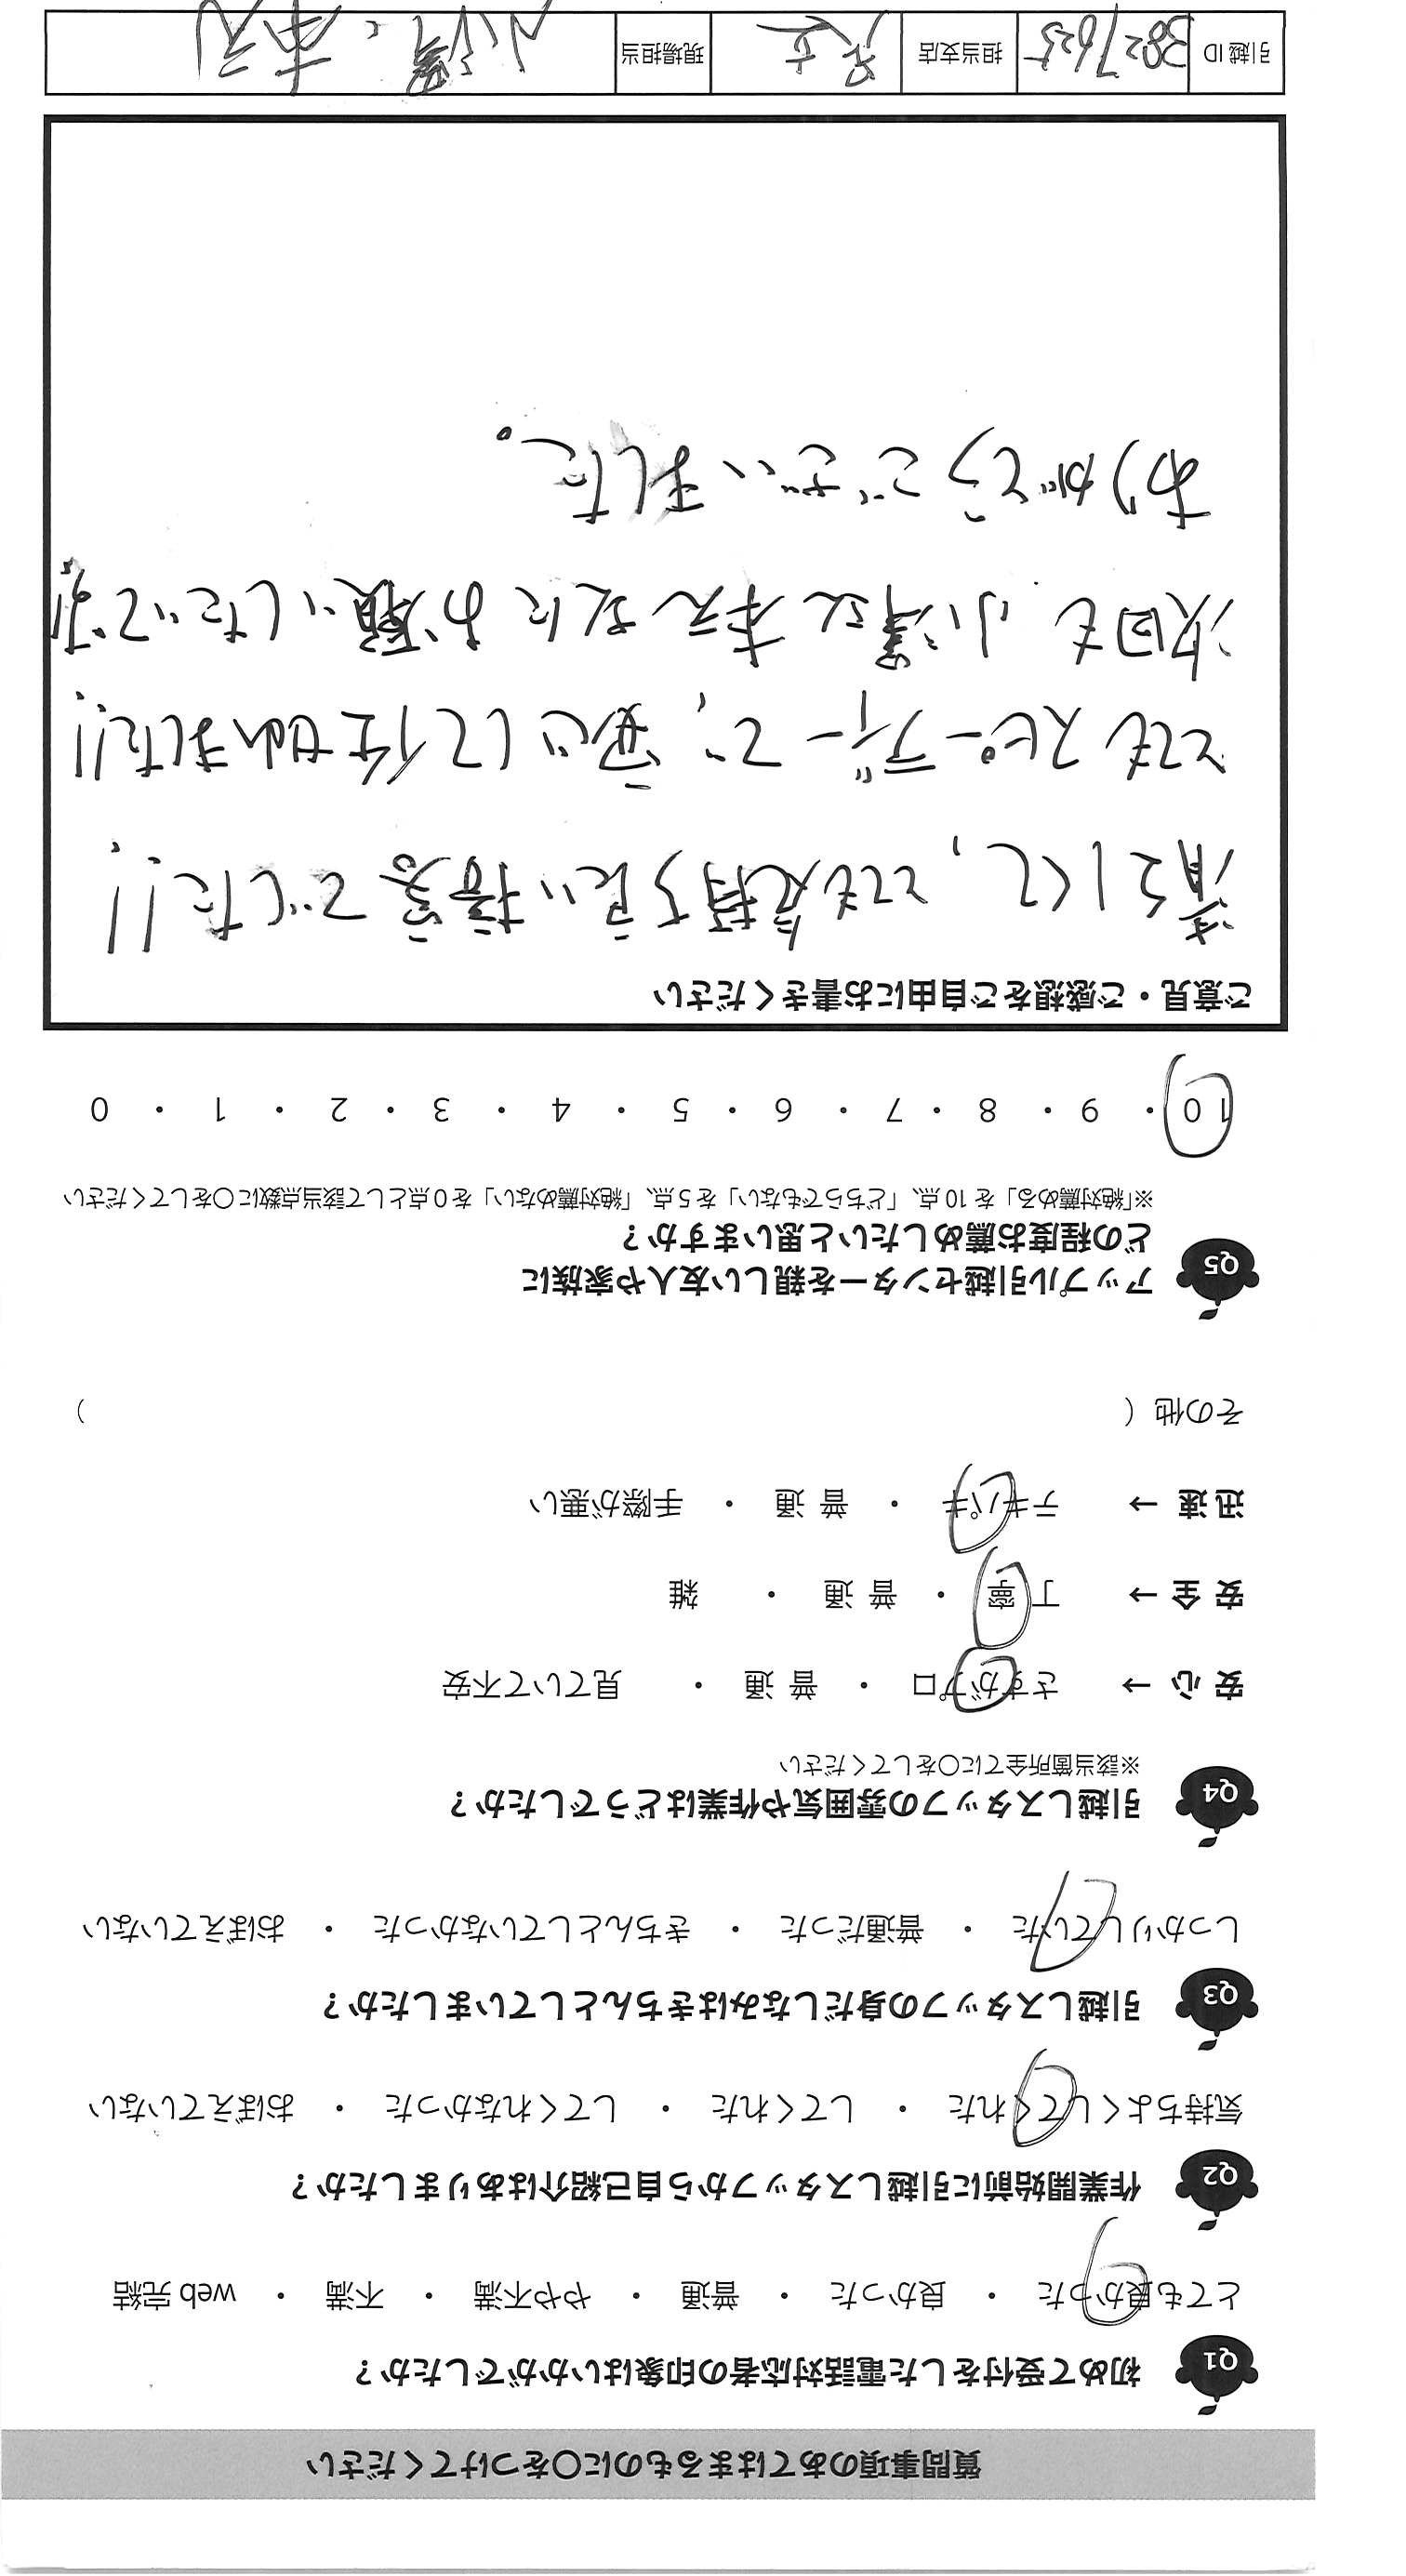 質問事項のあてはまるものに〇をつけてください
Q1 初めて受付をした電話対応者の印象はいかがでしたか？
とても良かった ・ 良かった ・ 普通 ・ やや不満 ・ 不満 ・ web 完結
Q2 作業開始前に引越しスタッフから自己紹介はありましたか？
気持ちよくしてくれた ・ してくれた ・ してくれなかった ・ おぼえていない
Q3 引越しスタッフの身だしなみはきちんとしていましたか？
しっかりしていた ・ 普通だった ・ きちんとしていなかった ・ おぼえていない
Q4 引越しスタッフの雰囲気や作業はどうでしたか？
※該当箇所全てに〇をしてください
安 心 → さすがプロ ・ 普 通 ・ 見ていて不安
安 全 → 丁 寧 ・ 普 通 ・ 雑
迅 速 → テキパキ ・ 普 通 ・ 手際が悪い
その他（ ）
Q5 アップル引越センターを親しい友人や家族に
どの程度お薦めしたいと思いますか？
※「絶対薦める」を 10 点、「どちらでもない」を 5 点、「絶対薦めない」を 0 点として該当点数に〇をしてください
10 ・ 9 ・ 8 ・ 7 ・ 6 ・ 5 ・ 4 ・ 3 ・ 2 ・ 1 ・ 0
ご意見・ご感想をご自由にお書きください
清々しくて、とても気持ち良い接客でした!!
とてもスピーディーで、安心して任せれました!!
次回も 小澤さん 本えさんにお願いしたいです。
ありがとうございました。
引越 ID 3827625 担当支店 足立 現場担当 小澤、